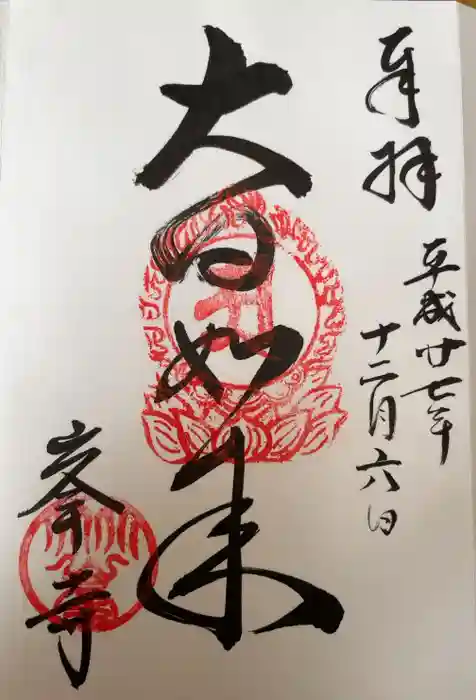 奉拝
平成廿七年
十二月六日
大日如来
峯寺